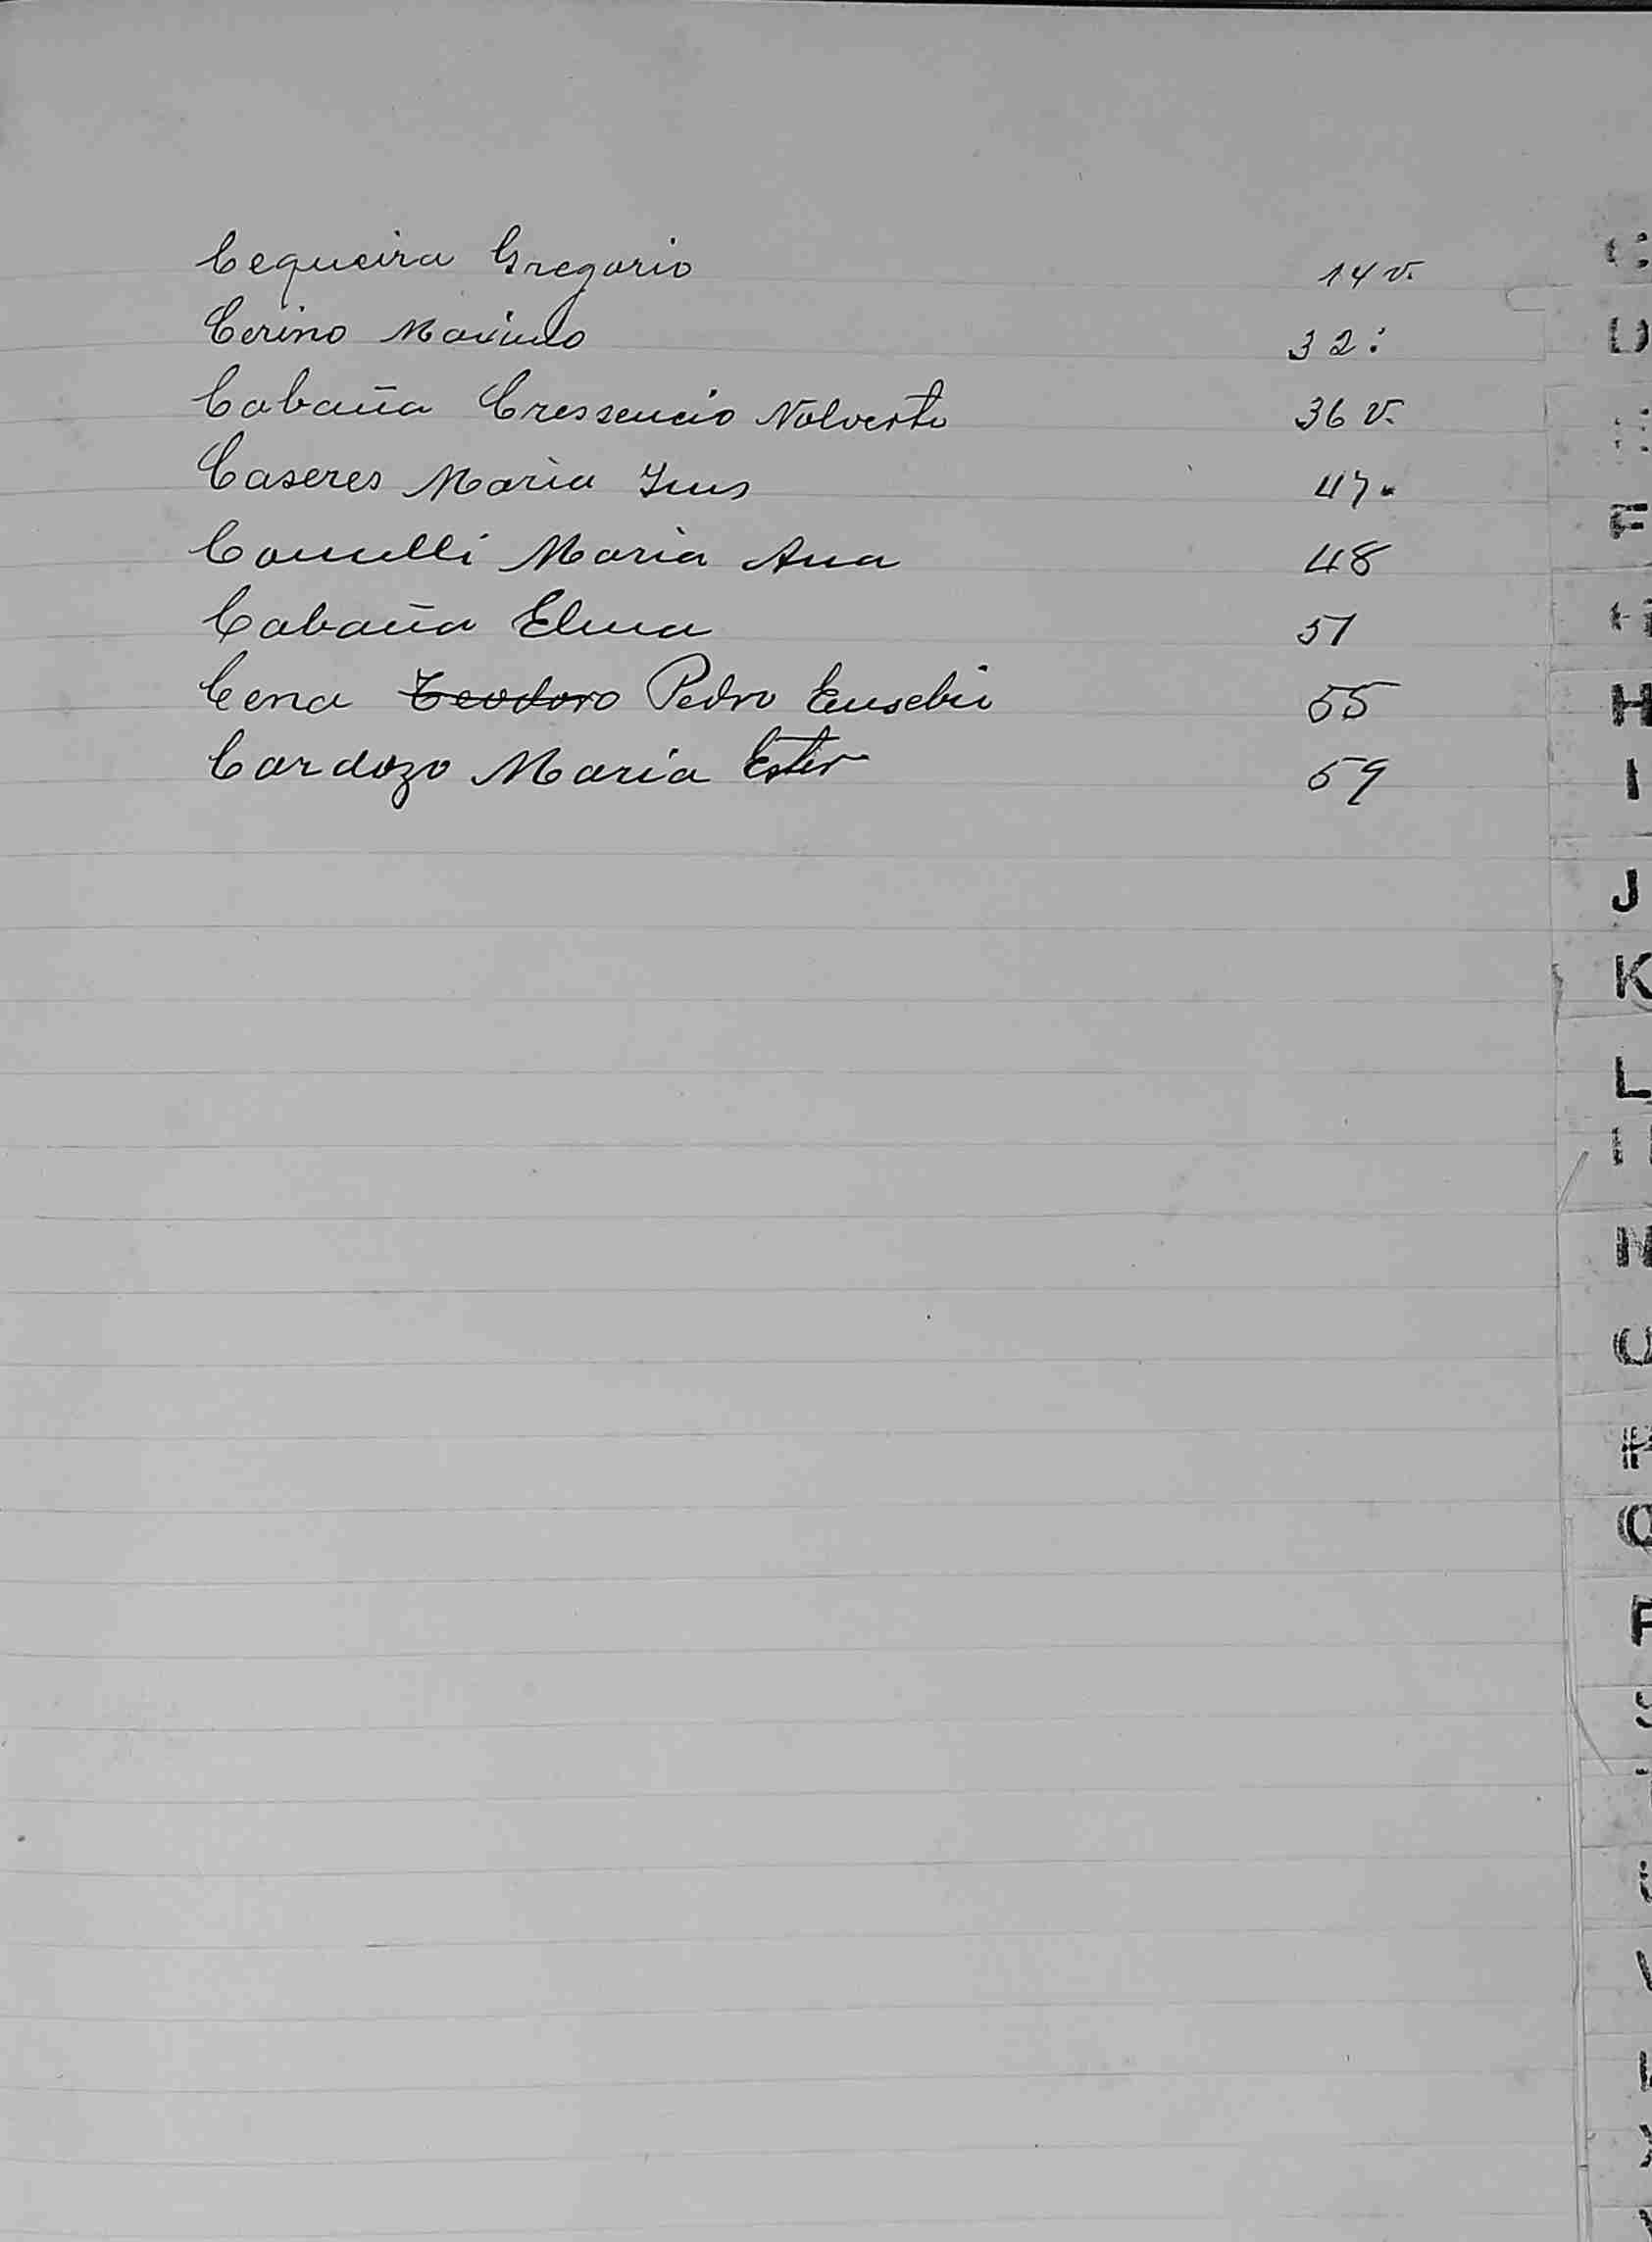 Cequeira Gregorio 14 v.
Cerino Maximo 32:
Cabaña Cressencio Nolverto 36 v.
Caseres Maria Ines 47.
Comelli Maria Ana 48
Cabaña Elma 51
Cena Teodoro Pedro Eusebio 55
Cardozo Maria Ester 59
F
H
I
J
K
L
N
Q
S